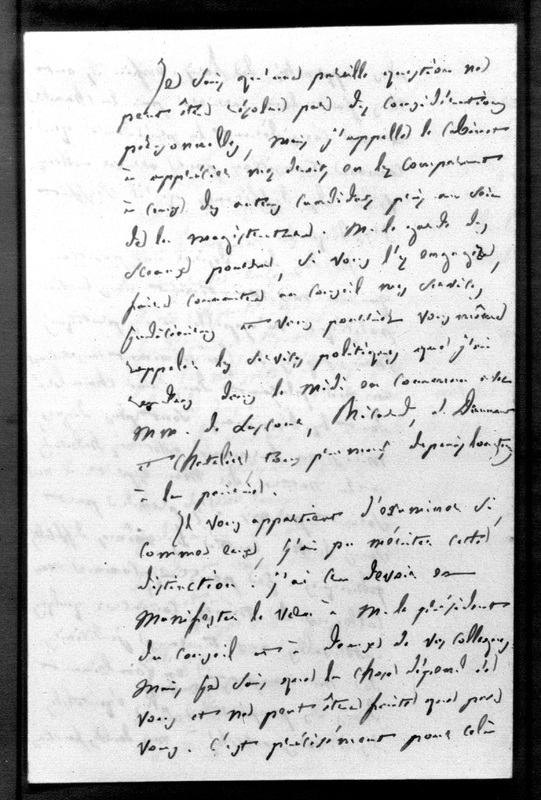 Je sais qu'une pareille question ne
peut être résolue par des considérations
personnelles, mais j'appelle le Cabinet
à apprécier mes droits en les comparant
à ceux des autres candidats pris au sein
de la magistrature. M. le garde des
sceaux pourra, si vous l'y engagez,
faire connaître au conseil mes services
judiciaires et vous pourriez vous même
rappeler les services politiques que j'ai
rendus dans le midi en commun avec
MM. de Lascoux, Nicard, et
et Chatelier trop peu nombreux depuis longtemps
à la pairie.
Il vous appartient d'examiner si,
comme eux, j'ai pu mériter cette
distinction. j'ai cru devoir en
manifester le vœu à M. le président
du conseil et à deux de vos collègues
mais je sais que la chose dépend de
vous et ne peut être faite que par
vous. C'est précisément pour cela